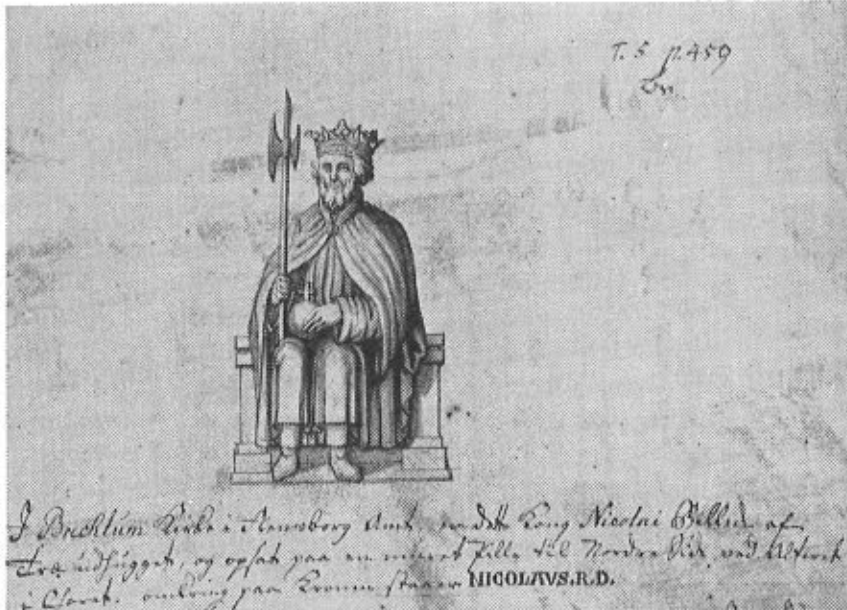 T. 5 p. 459
J Bucktum Kirke i Flensborg Amt, er dette Kong Nicolai Billede af
Træ udhugget, og opsat paa en muret Pille til Nordre Side ved Alteret
i Choret. omkring paa Kronen staaer NICOLAVS.R.D.